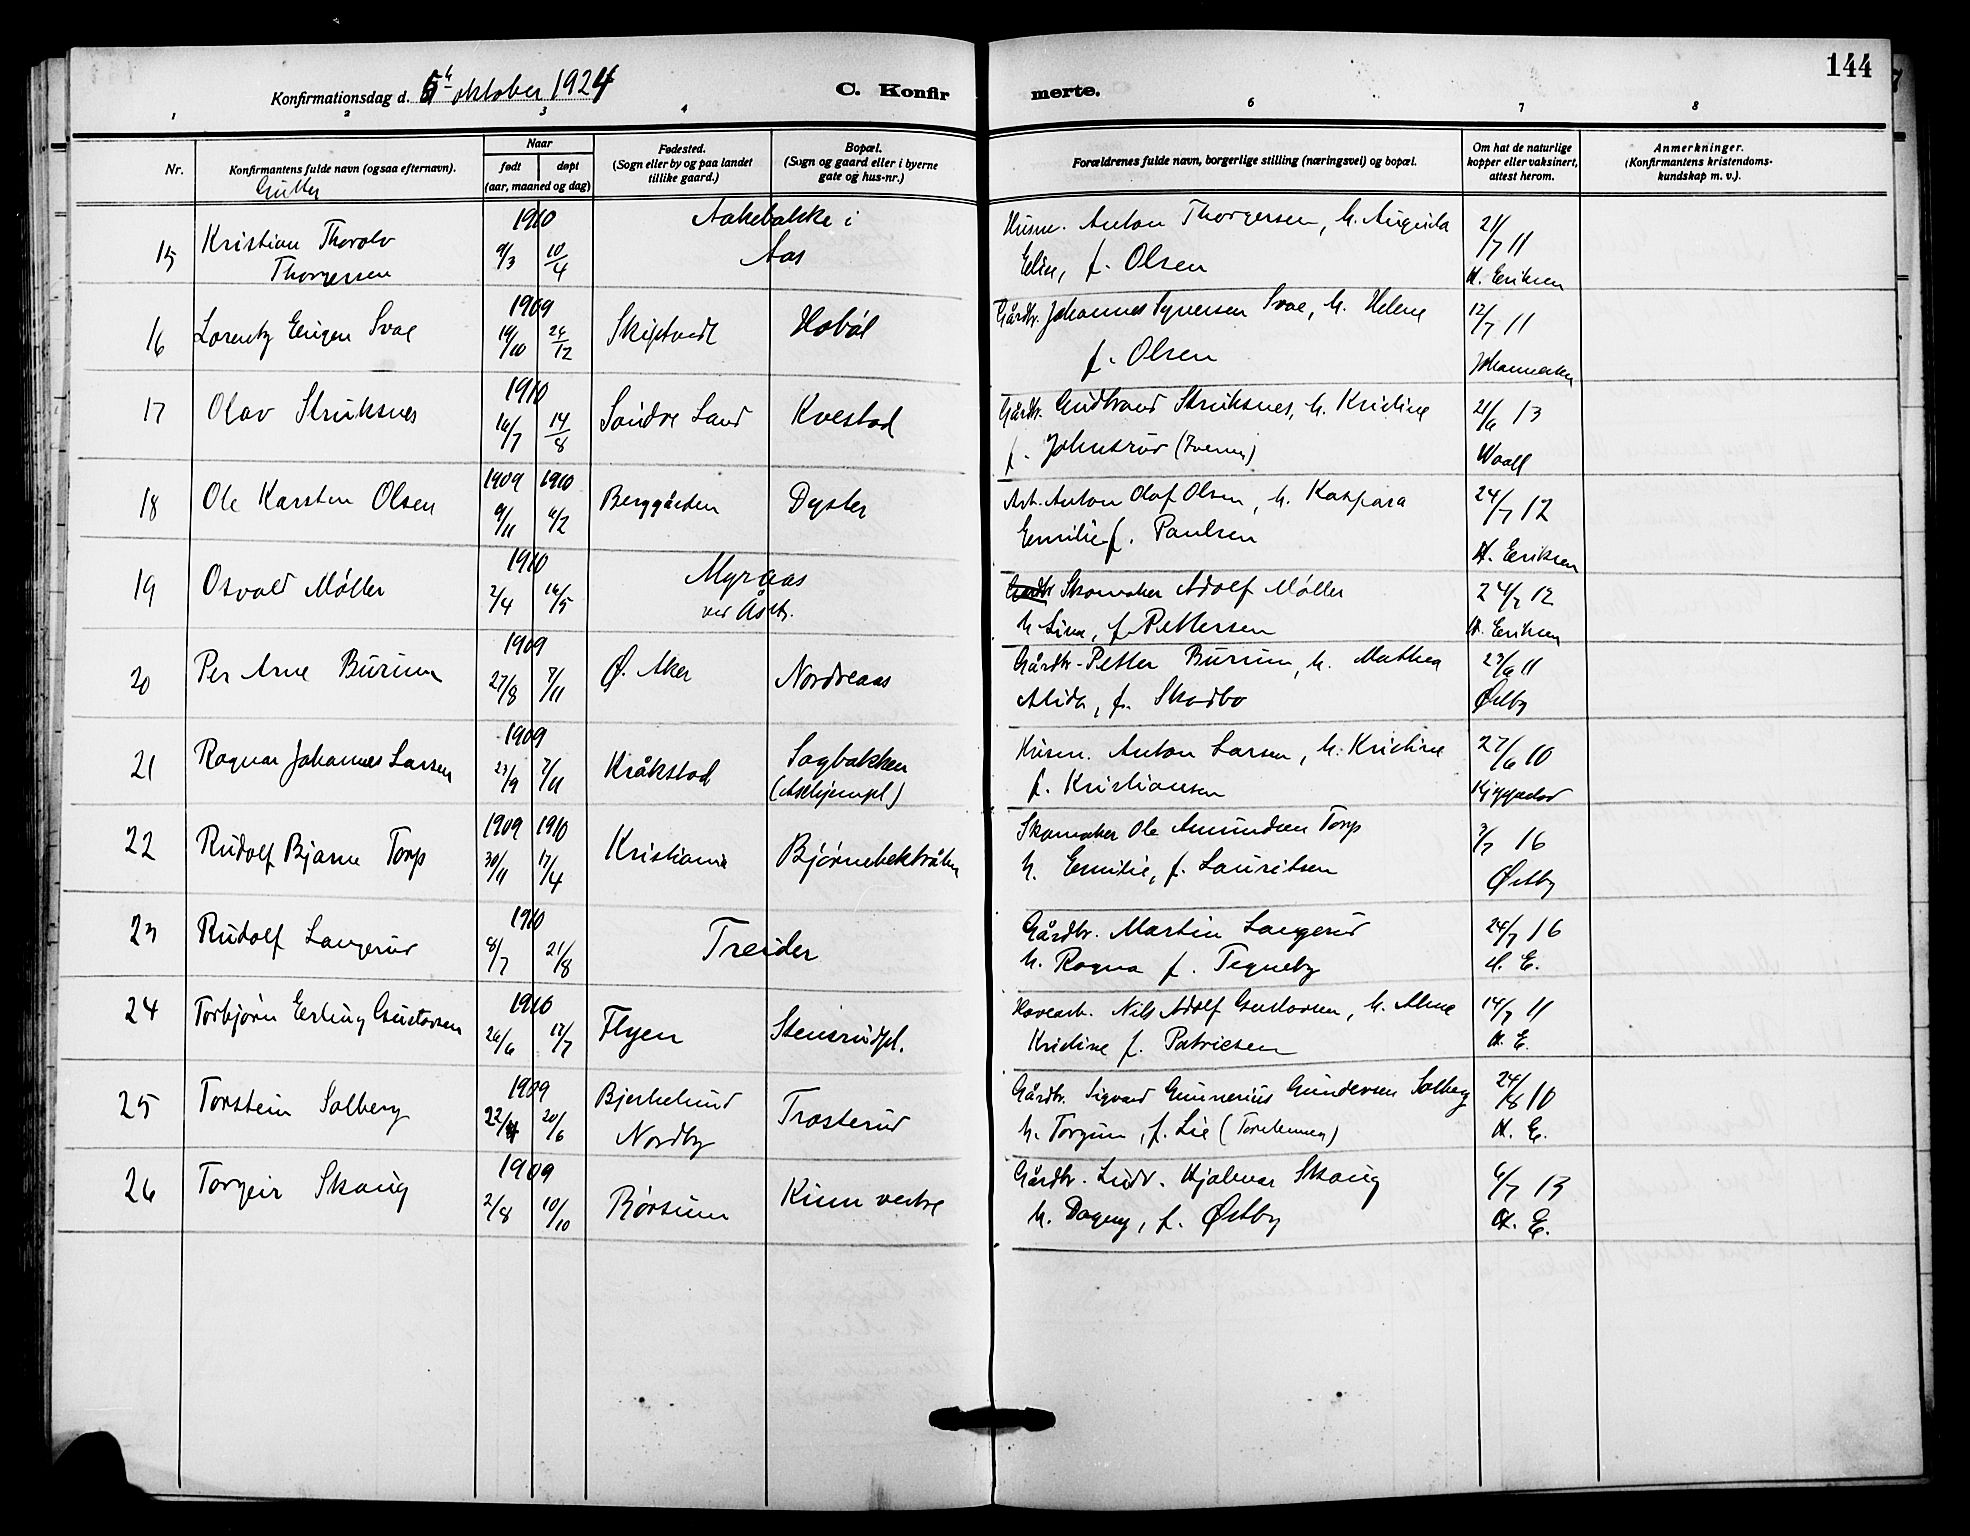 144
Konfirmationsdag d. 5te oktober 1924
C. Konfirmerte.
1 2 3 4 6 7 8
Nr.
Konfirmantens fulde navn (ogsaa efternavn).
Gutter
Naar
født døpt
(aar, maaned og dag)
Fødested.
(Sogn eller by og paa landet
tillike gaard.)
Bopæl.
(Sogn og gaard eller i byerne
gate og hus-nr.)
Forældrenes fulde navn, borgerlige stilling (næringsvei) og bopæl.
Om hat de naturlige
kopper eller vaksinert,
attest herom.
Anmerkninger.
(Konfirmantens kristendoms-
kundskap m. v.).
15 Kristian Thorolv
Thorgersen
1910
9/3 10/4
Aakebakke i
Aas
Husm. Anton Thorgersen, h. Augusta
Elin, f. Olsen
21/7 11
H. Eriksen
16 Lorentz Eugen Svae
1909
19/10 26/12
Skiptvedt
Hobøl
Gårdbr. Johannes Syversen Svae, h. Helene
f. Olsen
12/7 11
Johannesen
17 Olav Struksnes
1910
16/7 14/8
Søndre Land
Kvestad
Gårdbr. Gudbrand Struksnes, h. Kristine
f. Johnsrud
21/6 13
Waall
18 Ole Karsten Olsen
1909 1910
9/11 6/2
Berggården
Dyster
Arb. Anton Olaf Olsen, h. Kaspara
Emilie f. Paulsen
24/7 12
H. Eriksen
19 Osvald Møller
1910
2/4 16/5
Myraas
ved Ås st.
Skomaker Adolf Møller
h. Lina, f. Pettersen
24/7 12
H. Eriksen
20 Per Arne Burum
1909
27/8 7/11
Ø. Aker
Nordreaas
Gårdbr. Petter Burum, h. Mathea
Alida, f. Skadbo
23/6 11
Østby
21 Ragnar Johannes Larsen
1909
23/9 7/11
Kråkstad
Sagbakken
(Askjempl)
Husm. Anton Larsen, h. Kristine
f. Kristiansen
27/6 10
22 Rudolf Bjarne Torp
1909 1910
30/11 17/4
Kristiania
Bjørnebekkbråten
Skomaker Ole Amundsen Torp
h. Emilie, f. Lauritsen
3/7 16
Østby
23 Rudolf Langerud
1910
8/7 21/8
Treider
Gårdbr. Martin Langerud
h. Ragna f. Tegneby
24/7 16
H. E.
24 Torbjørn Erling Gustavsen
1910
26/6 17/7
Flyen
Stensrudpl.
Havearb. Nils Adolf Gustavsen, h. Alma
Kristine f. Patricsen
14/7 11
H. E.
25 Torstein Solberg
1909
22/4 20/6
Bjerkelund
Nordby
Trosterud
Gårdbr. Sigvard Gunnerius Gundersen Solberg
h. Torgun, f. Lie
24/8 10
H. E.
26 Torgeir Skaug
1909
2/8 10/10
Børsum
Kinn vestre
Gårdbr. Ludv. Hjalmar Skaug
h. Dagny, f. Østby
6/7 13
H. E.